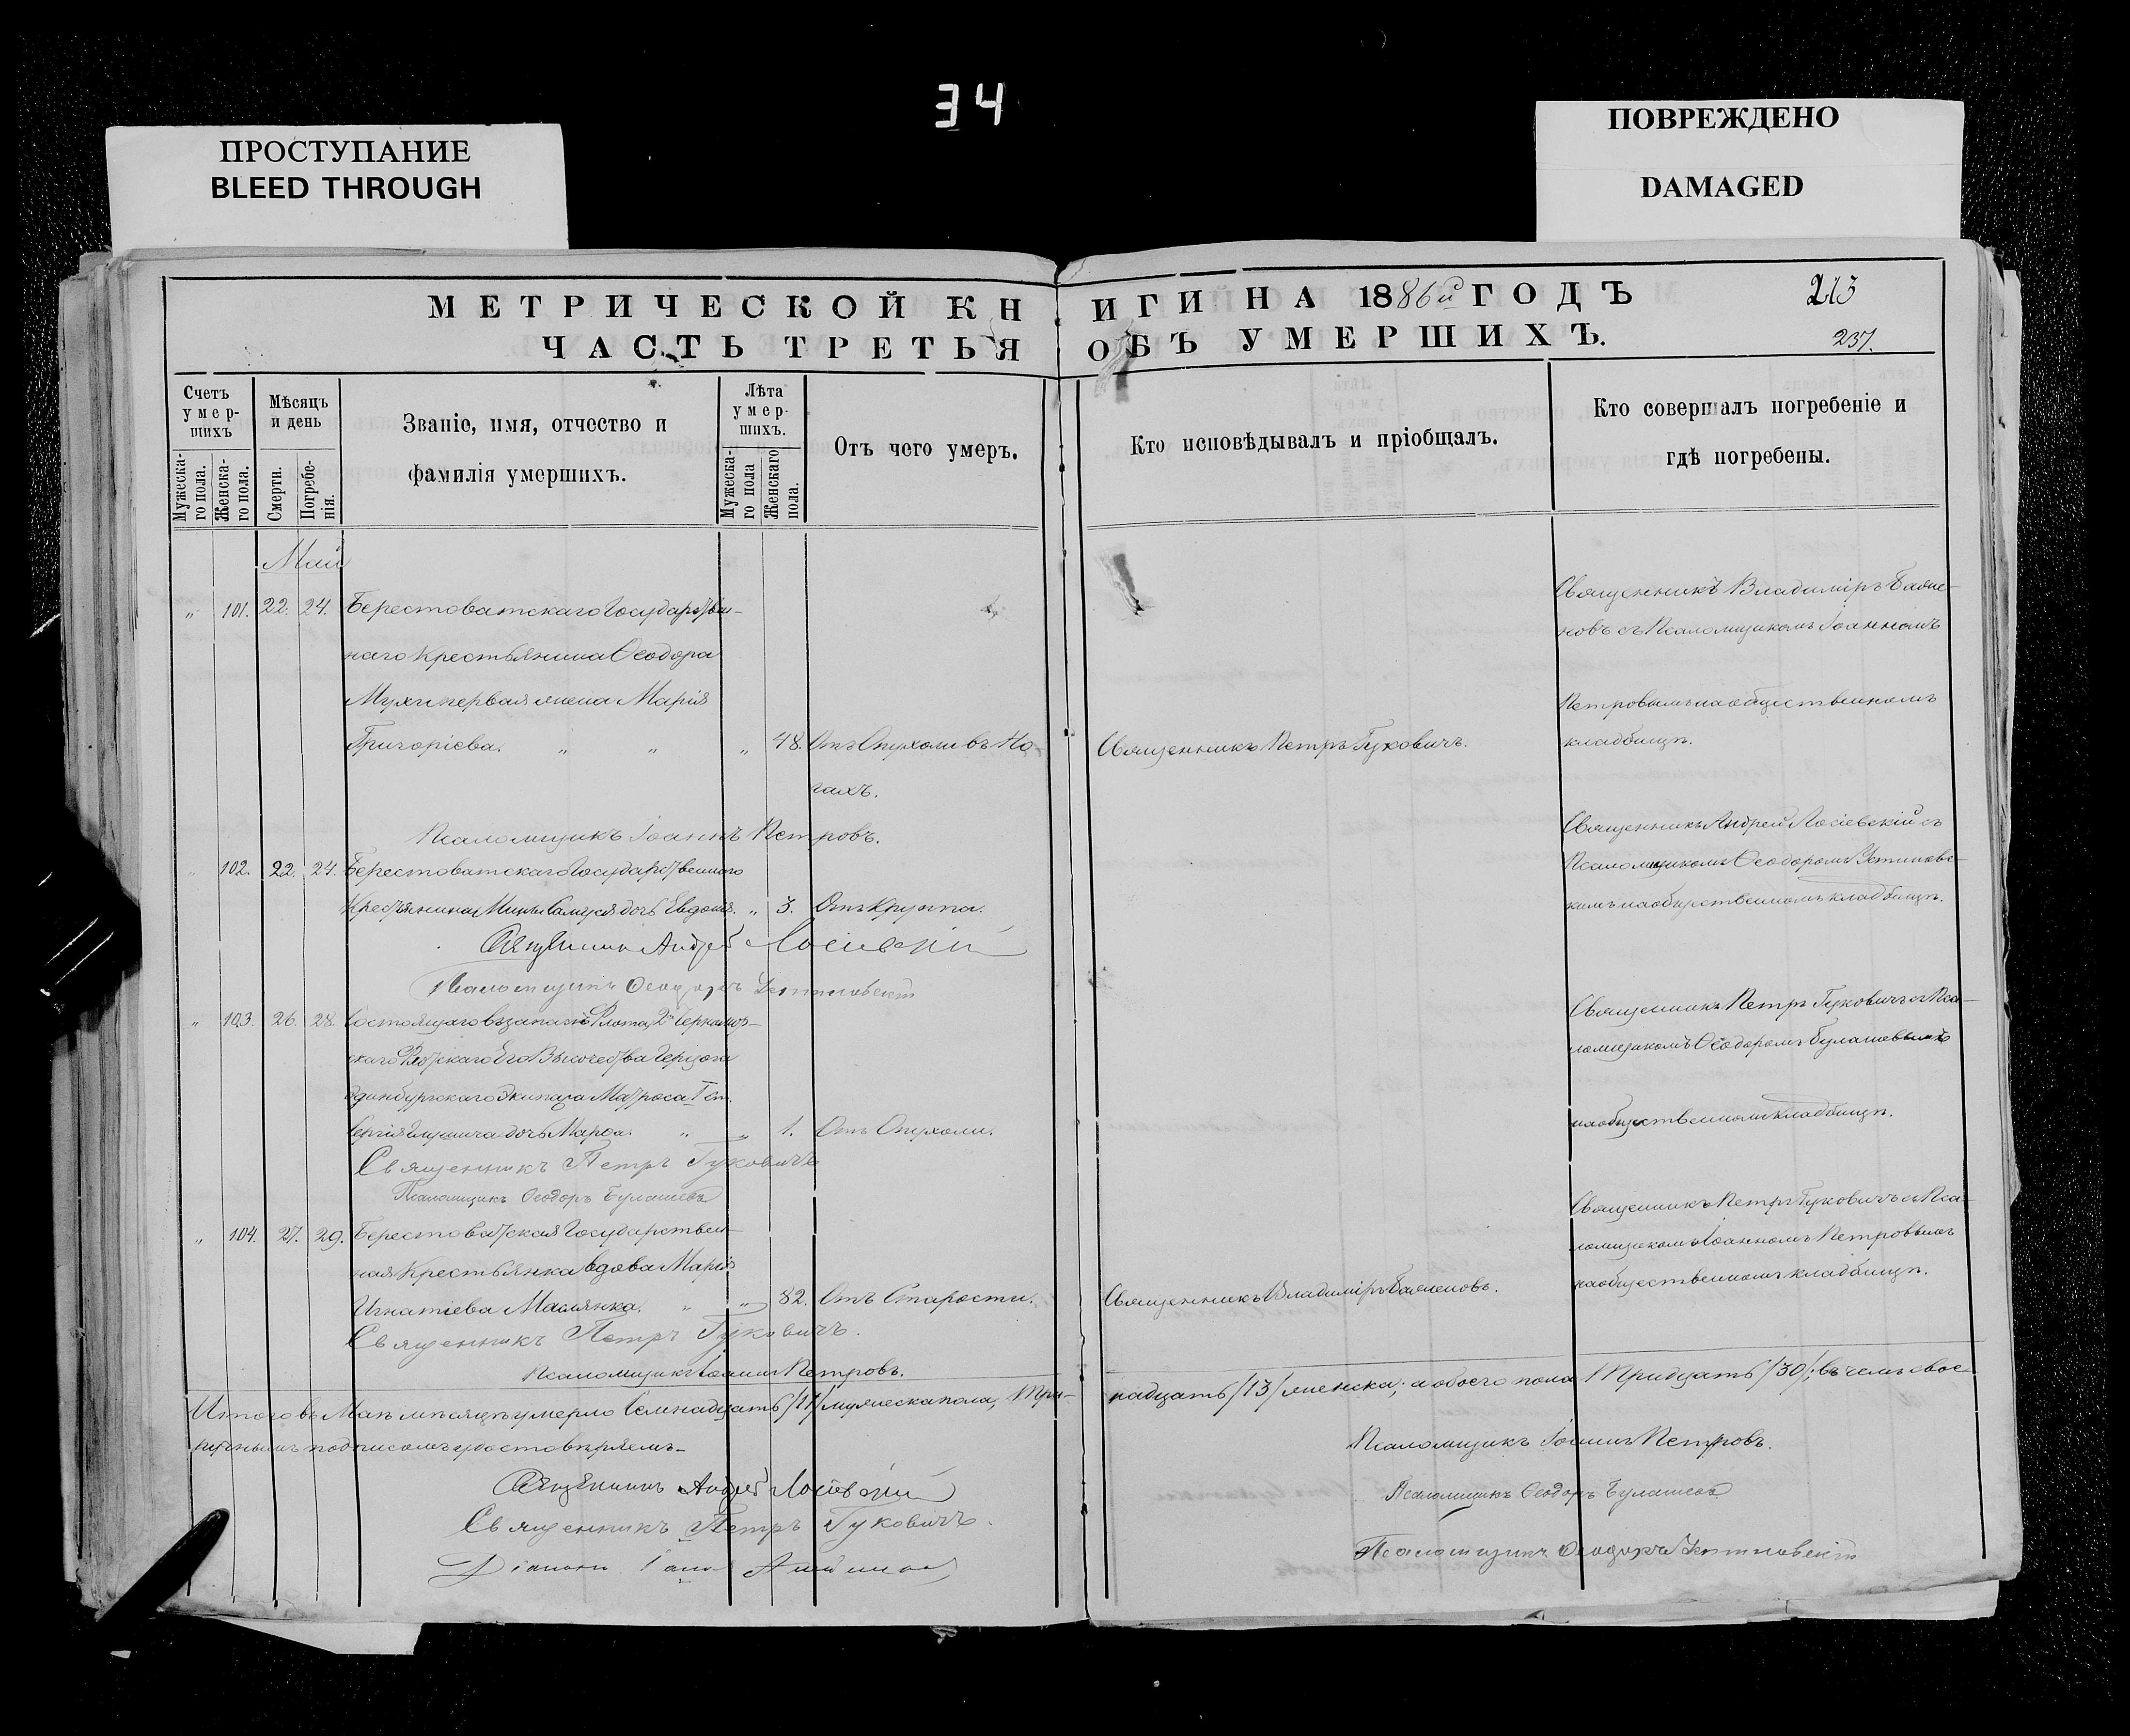 34
ПРОСТУПАНИЕ
BLEED THROUGH
ПОВРЕЖДЕНО
DAMAGED
МЕТРИЧЕСКОЙ КНИГИ НА 1886й ГОДЪ
213
ЧАСТЬ ТРЕТЬЯ ОБЪ УМЕРШИХЪ.
237.
Счетъ умер-шихъ
Мужеска-го пола.
Женска-го пола.
Мѣсяцъ и день
Смерти.
Погребе-нія.
Званіе, имя, отчество и
фамилія умершихъ.
Лѣта умер-шихъ.
Мужеска-го пола
Женскаго пола.
Отъ чего умеръ.
Кто исповѣдывалъ и пріобщалъ.
Кто совершалъ погребеніе и
гдѣ погребены.
Май
" 101. 22. 24. Берестоватскаго Государствен-
наго Крестьянина Ѳеодора
Мухи первая жена Марія
Григоріева. " " " 48. Отъ Опухоли въ Но-
гахъ.
Священникъ Петръ Гуковичъ.
Священникъ Владиміръ
новъ съ Псаломщикомъ Іоанномъ
Петровымъ на общественномъ
кладбищѣ.
Псаломщикъ Іоаннъ Петровъ.
" 102. 22. 24. Берестоватскаго Государственнаго
Крестьянина дочь Евдокія. " 3. Отъ Крупа.
Священникъ Андрей Лосіевскій съ
Псаломщикомъ Ѳеодоромъ Устиновс-
кимъ на общественномъ кладбищѣ.
Священникъ Андрей Лосіевскій
Псаломщикъ Ѳеодоръ Устиновскій
" 103. 26. 28. Состоящаго въ запасѣ Флота 2го Черномор-
скаго Флотскаго Его Высочества Герцога
Эдинбургскаго Экипажа Матроса 1 ст.
Сергія дочь Марѳа. " " 1. Отъ Опухоли.
Священникъ Петръ Гуковичъ съ Пса-
ломщикомъ Ѳеодоромъ Булашевымъ
на общественномъ кладбищѣ.
Священникъ Петръ Гуковичъ
Псаломщикъ Ѳеодоръ Булашевъ
" 104. 27. 29. Берестоватская Государствен-
ная Крестьянка вдова Марія
Игнатіева Маслянка. " " 82. Отъ Старости.
Священникъ Владиміръ
Священникъ Петръ Гуковичъ съ Пса-
ломщикомъ Іоанномъ Петровымъ
на общественномъ кладбищѣ.
Священникъ Петръ Гуковичъ.
Псаломщикъ Іоаннъ Петровъ.
Итого въ Маѣ мѣсяцѣ умерло Семнадцать /17/ мужеска пола, Три-
надцать /13/ женска; а обоего пола Тридцать /30/; въ чемъ свое-
ручнымъ подписомъ удостовѣряемъ.
Священникъ Андрей Лосіевскій
Священникъ Петръ Гуковичъ.
Діаконъ
Псаломщикъ Іоаннъ Петровъ.
Псаломщикъ Ѳеодоръ Булашевъ
Псаломщикъ Ѳеодоръ Устиновскій